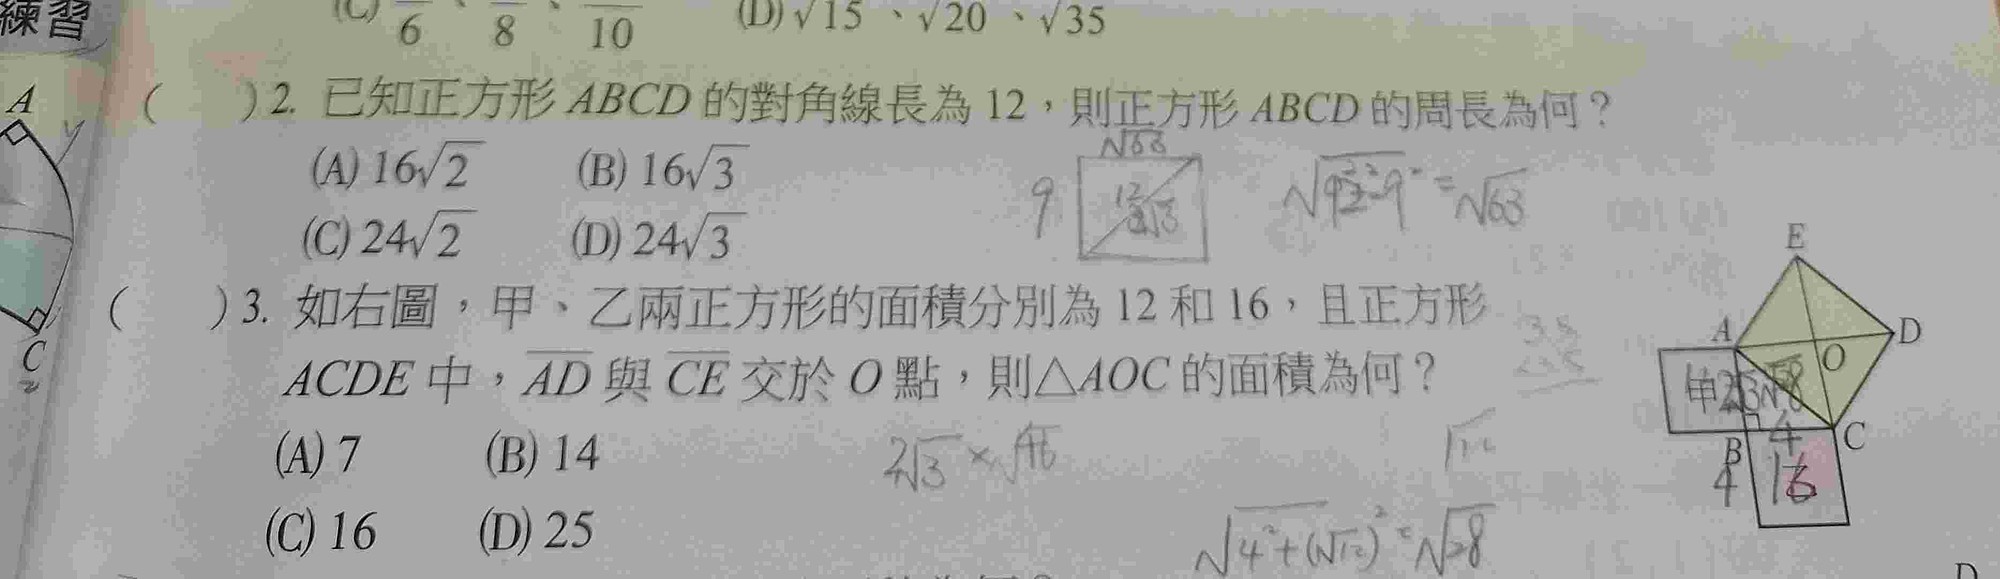 練習
(C) 6 、 8 、 10 (D) √15 、√20 、√35
A
( ) 2. 已知正方形 ABCD 的對角線長為 12，則正方形 ABCD 的周長為何？
(A) 16√2 (B) 16√3
(C) 24√2 (D) 24√3
9
√63
C
( ) 3. 如右圖，甲、乙兩正方形的面積分別為 12 和 16，且正方形
ACDE 中，AD 與 CE 交於 O 點，則△AOC 的面積為何？
(A) 7 (B) 14
(C) 16 (D) 25
2√3 × √16
√12
√4²+(√12)² = √28
E
A
D
O
甲
B
4
C
4
16
D